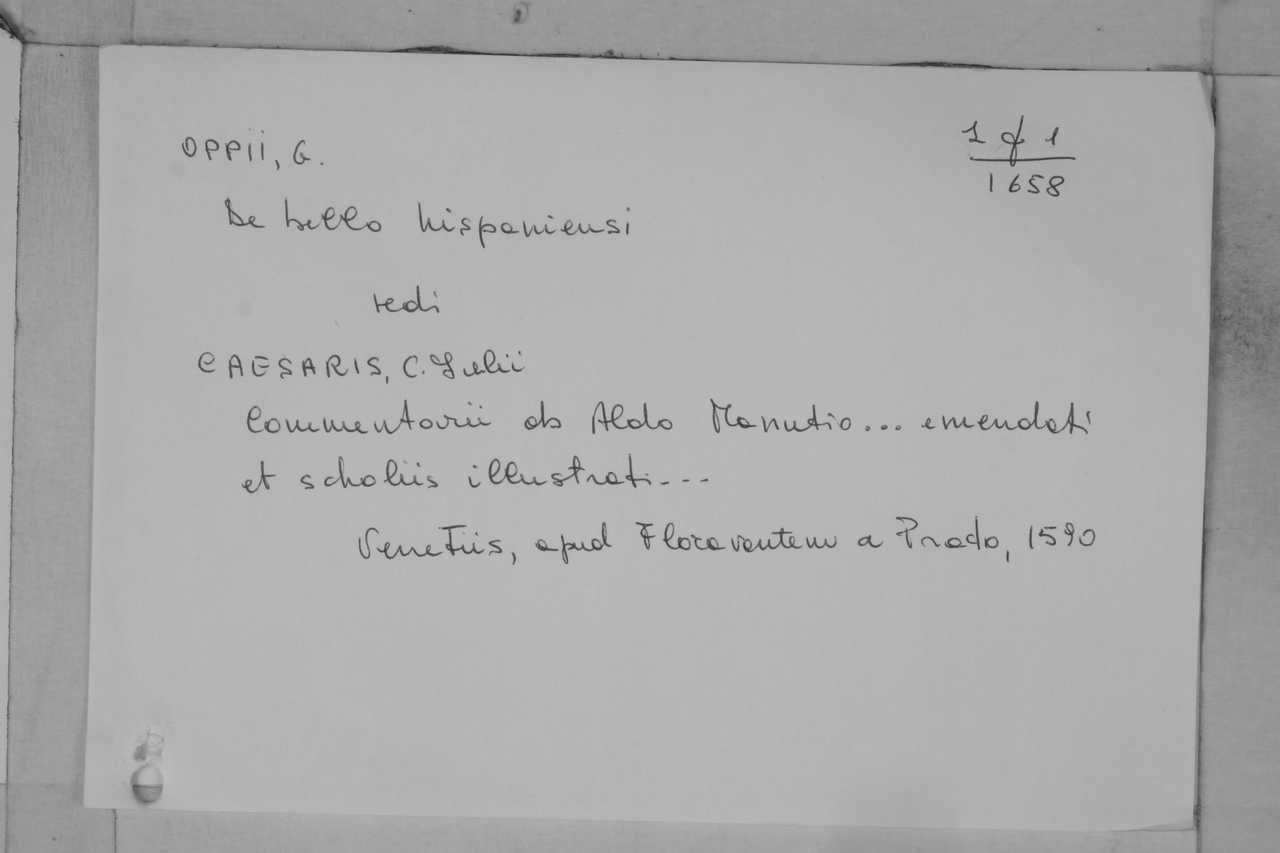 OPPII, G.
1 f 1
1658
De bello hispaniensi
vedi
CAESARIS, C. Julii
Commentarii ab Aldo Manutio... emendati
et scholiis illustrati...
Venetiis, apud Floraventem a Prado, 1590